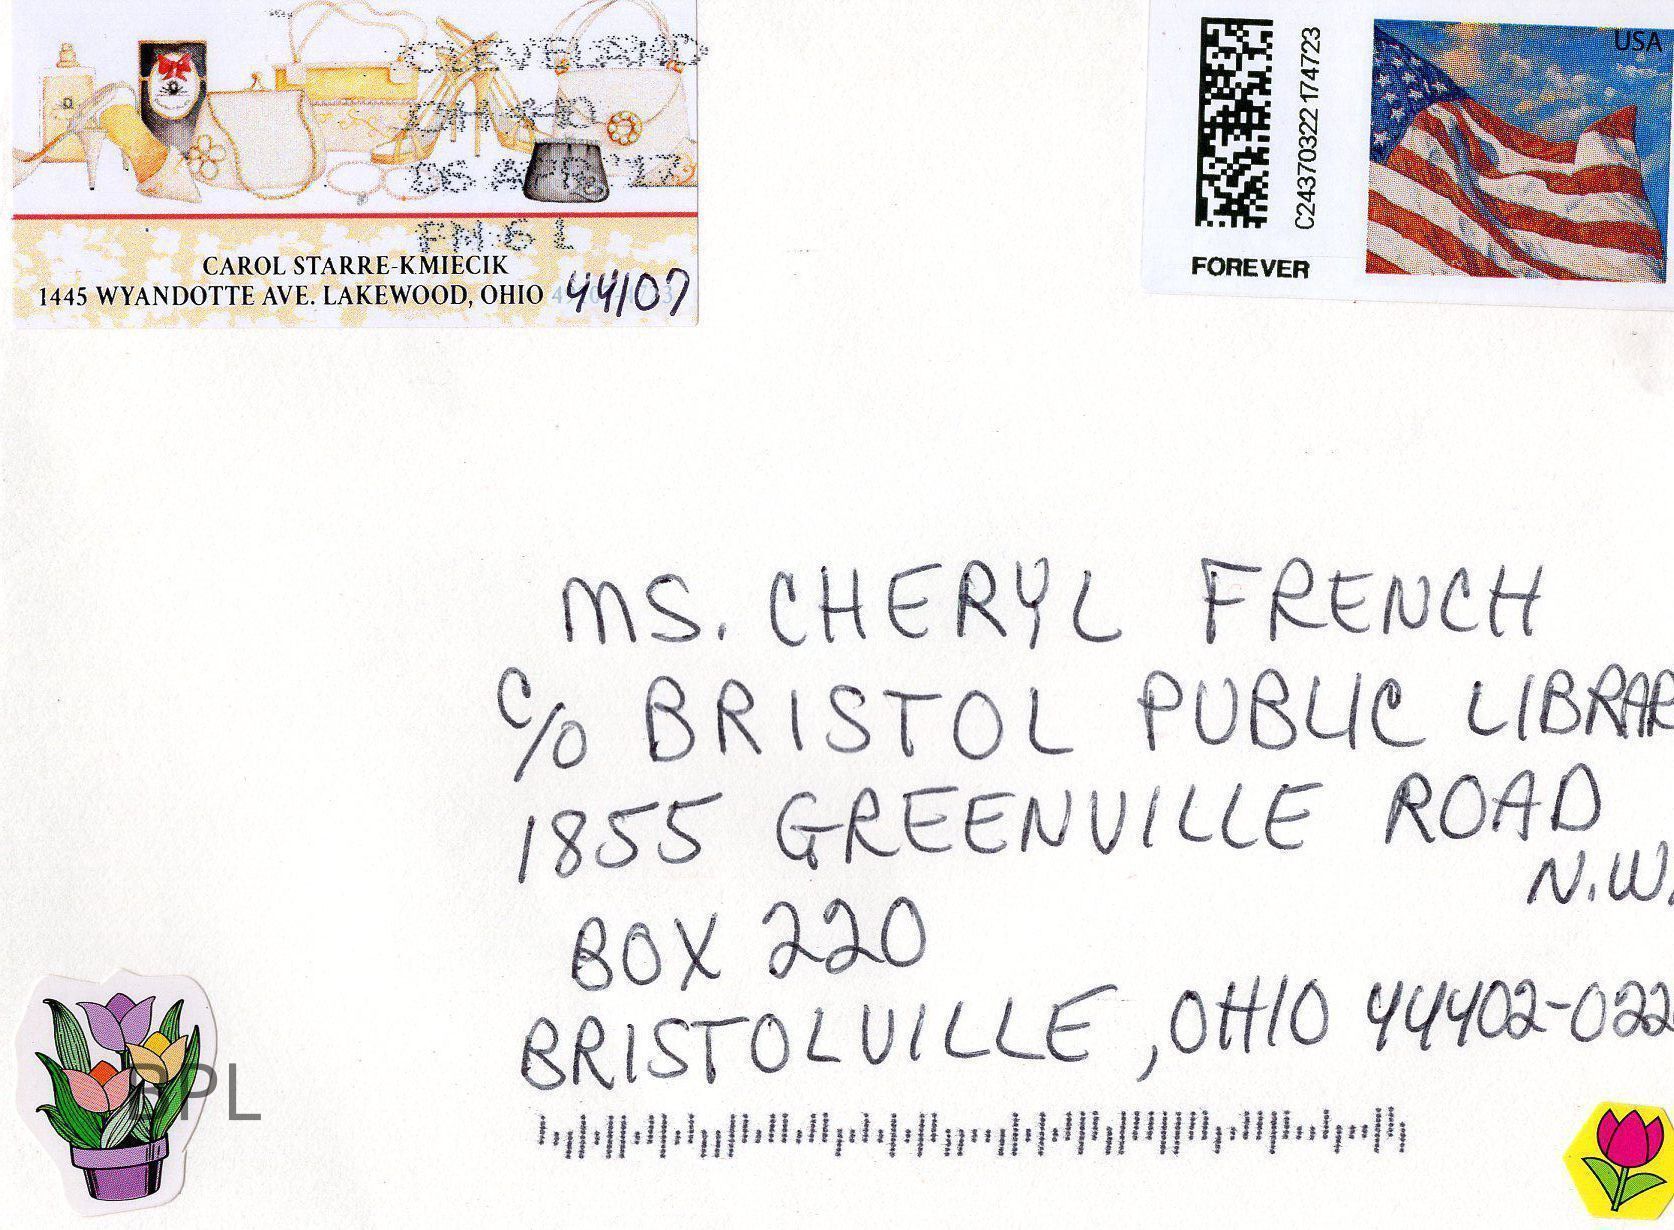 CLEVELAND
OH 440
06 APR '17
PM 6 L
CAROL STARRE-KMIECIK
1445 WYANDOTTE AVE. LAKEWOOD, OHIO 44107
USA
C24370322174723
FOREVER
MS. CHERYL FRENCH
C/O BRISTOL PUBLIC LIBRAR
1855 GREENVILLE ROAD
N.W.
BOX 220
BRISTOLVILLE, OHIO 44402-022
BPL